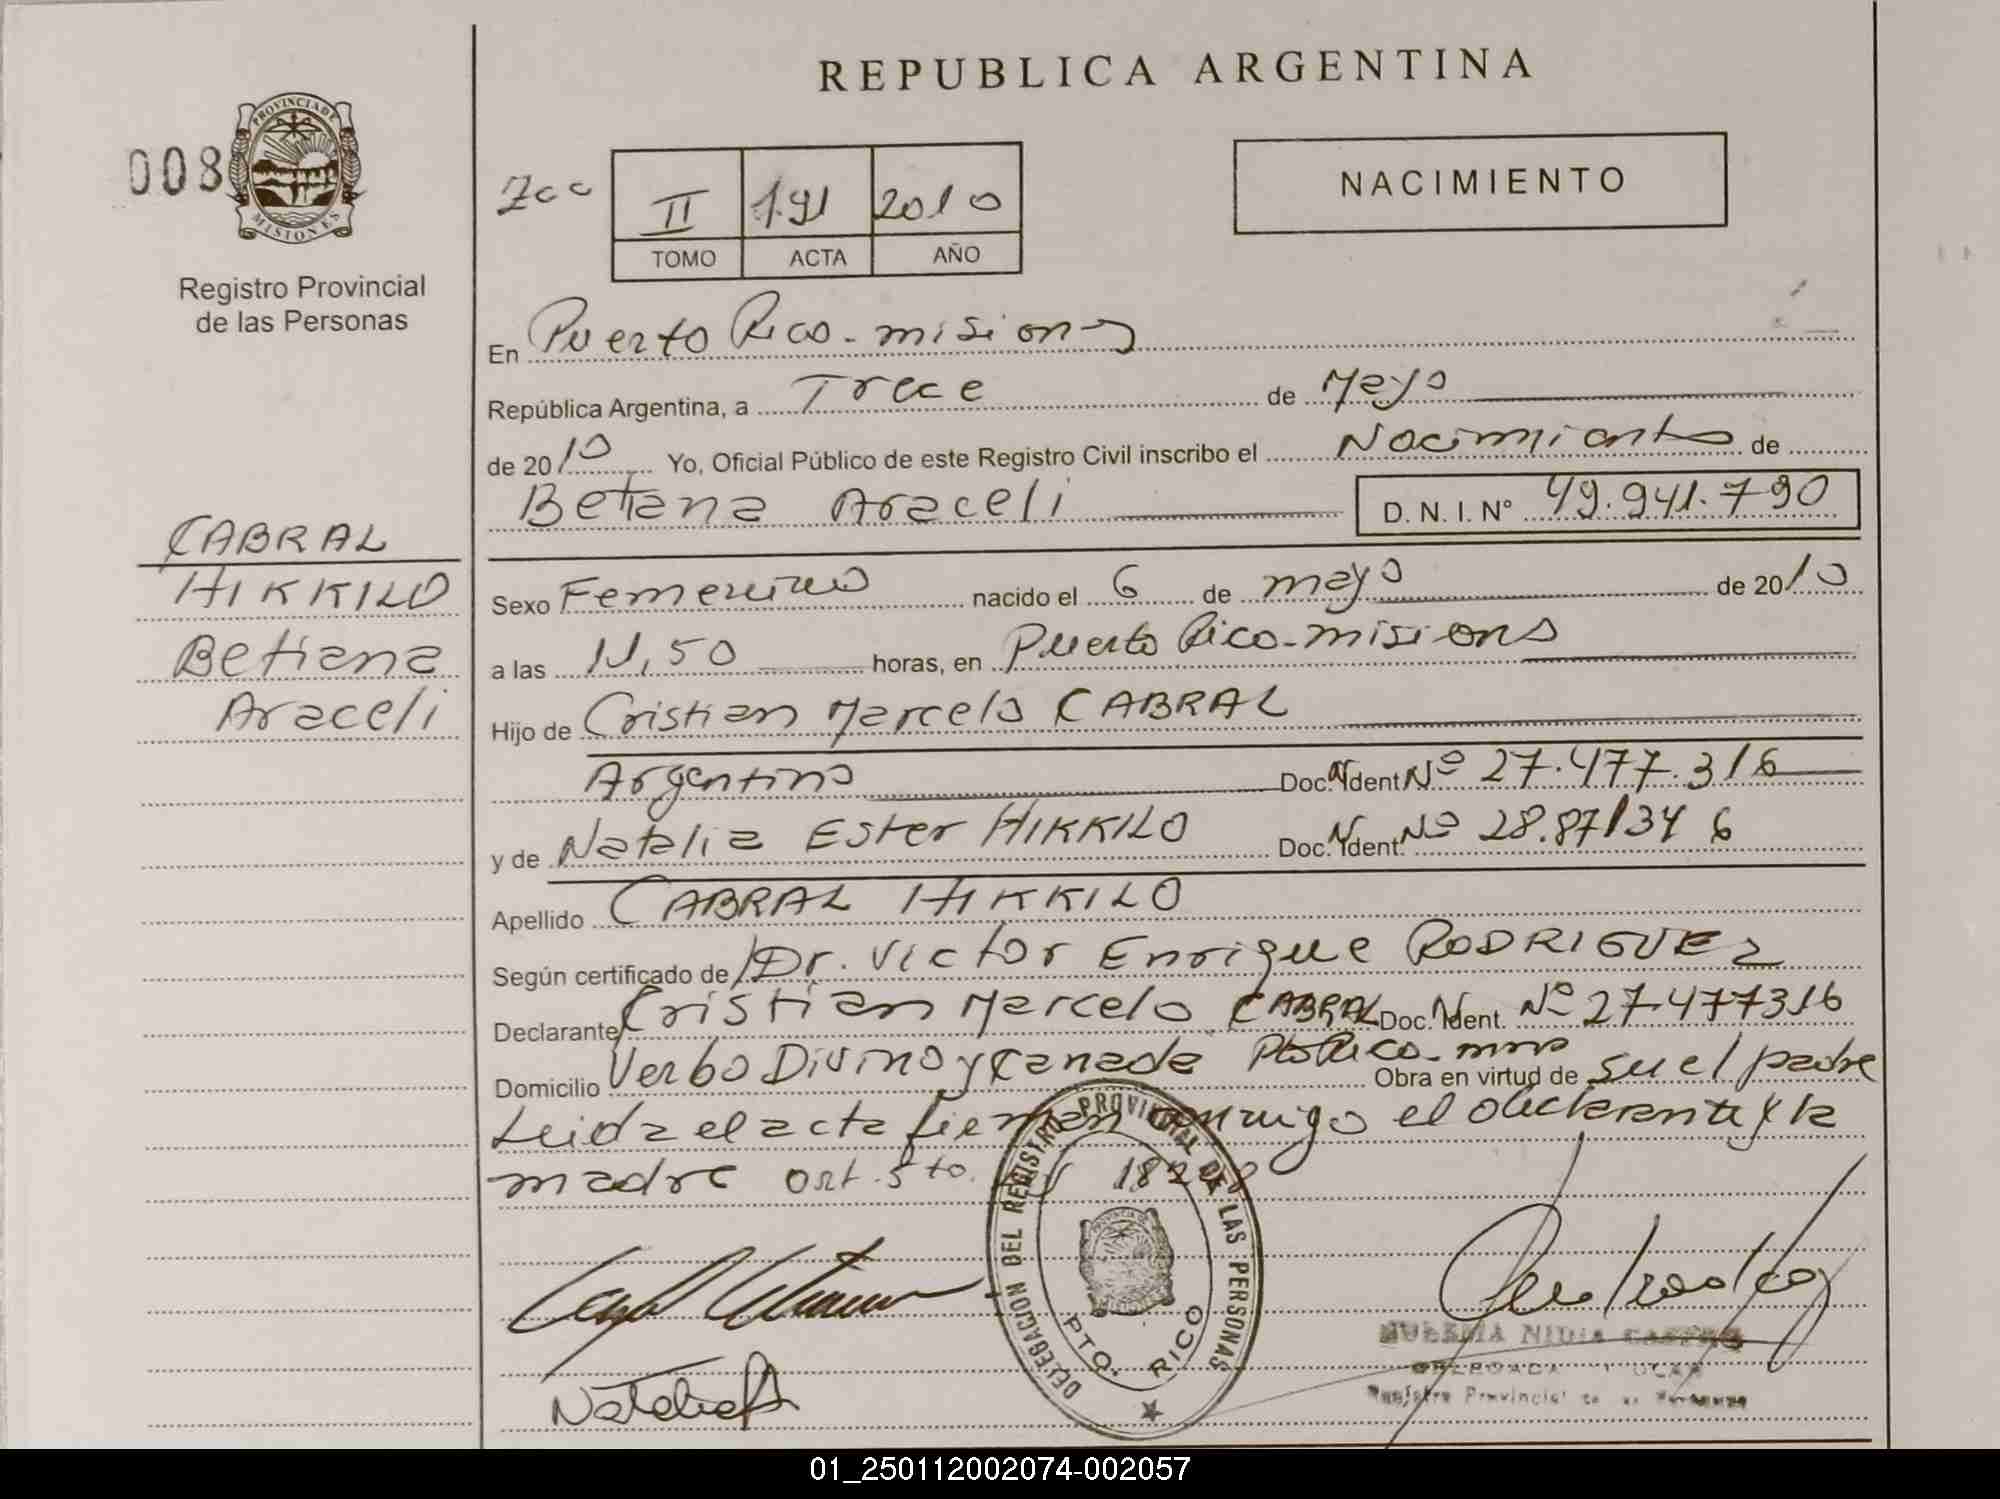 REPUBLICA ARGENTINA
008
PROVINCIA DE
MISIONES
Registro Provincial
de las Personas
II 191 2010
TOMO ACTA AÑO
NACIMIENTO
En Puerto Rico - misiones
República Argentina, a Trece de Mayo
de 2010 Yo, Oficial Público de este Registro Civil inscribo el Nacimiento de
Betiana Araceli D. N. I. Nº 49.941.790
CABRAL
HIKKILO
Betiana
Araceli
Sexo Femenino nacido el 6 de mayo de 2010
a las 11,50 horas, en Puerto Rico - misiones
Hijo de Cristian Marcelo CABRAL
Argentino Doc. Ident Nº 27.477.316
y de Natalia Ester HIKKILO Doc. Ident. Nº 28.871346
Apellido CABRAL HIKKILO
Según certificado de Dr. Victor Enrique RODRIGUEZ
Declarante Cristian Marcelo CABRAL Doc. Ident. Nº 27.477316
Domicilio Verbo Divino y Canada Pto Rico - mnes Obra en virtud de su el padre
Leida el acta firman conmigo el declarante y la
madre art. 5to. 18248
DELEGACION DEL REGISTRO PROVINCIAL DE LAS PERSONAS
PTO. RICO
NIDIA CASTRO
DELEGADA
Registro Provincial de las Personas
01_250112002074-002057